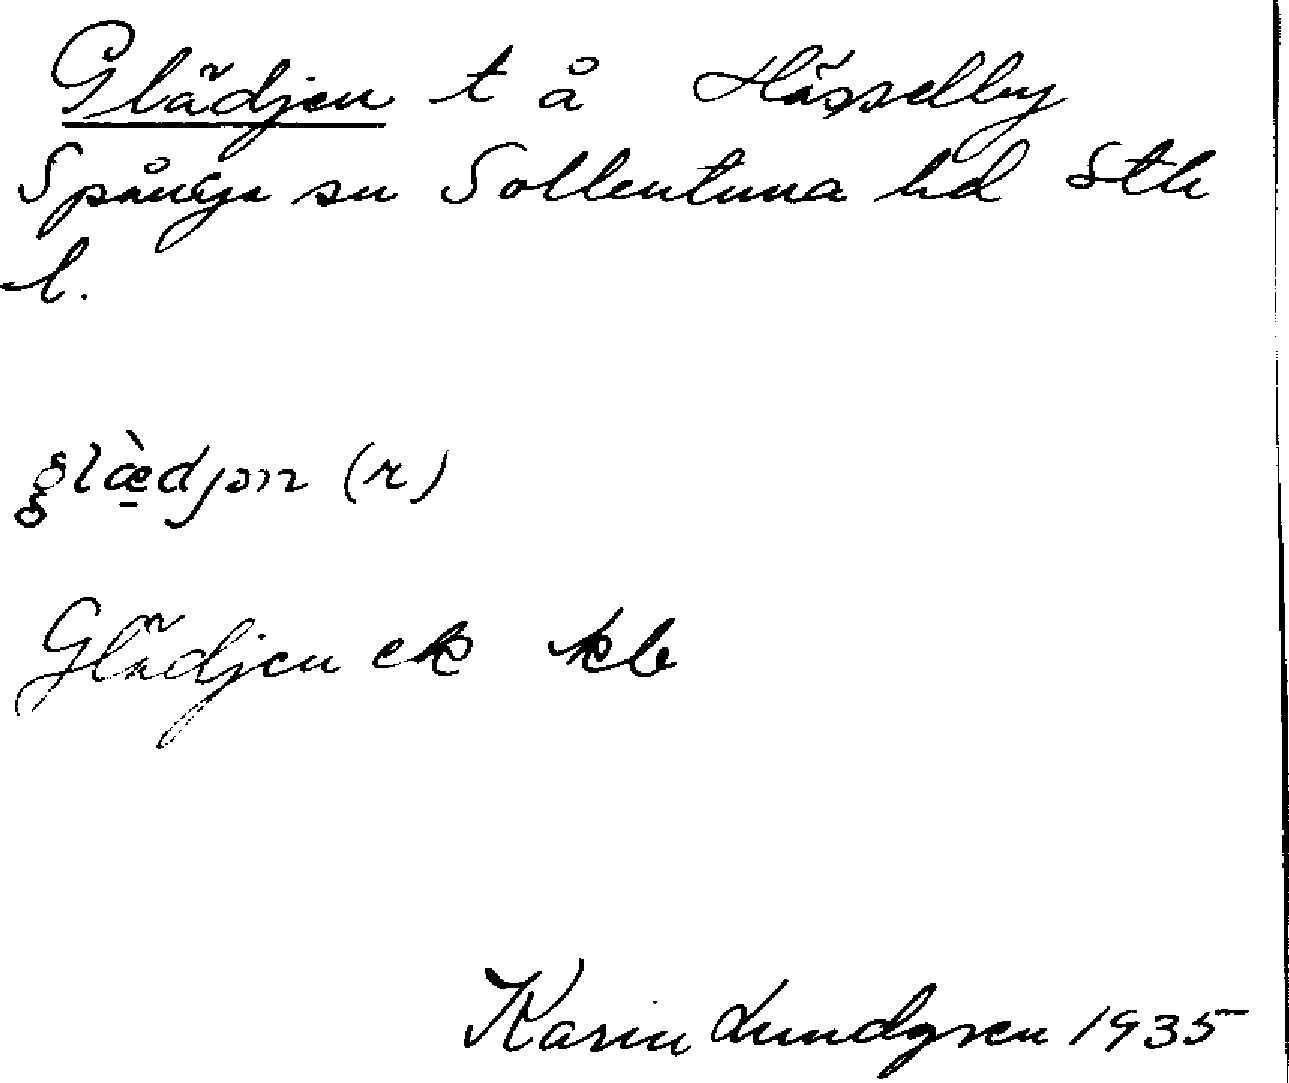 Glädjen t å Hässelby
Spånga sn Sollentuna hd Sth
l.
glæ̀djən (r)
Glädjen ek kb
Karin Lundgren 1935